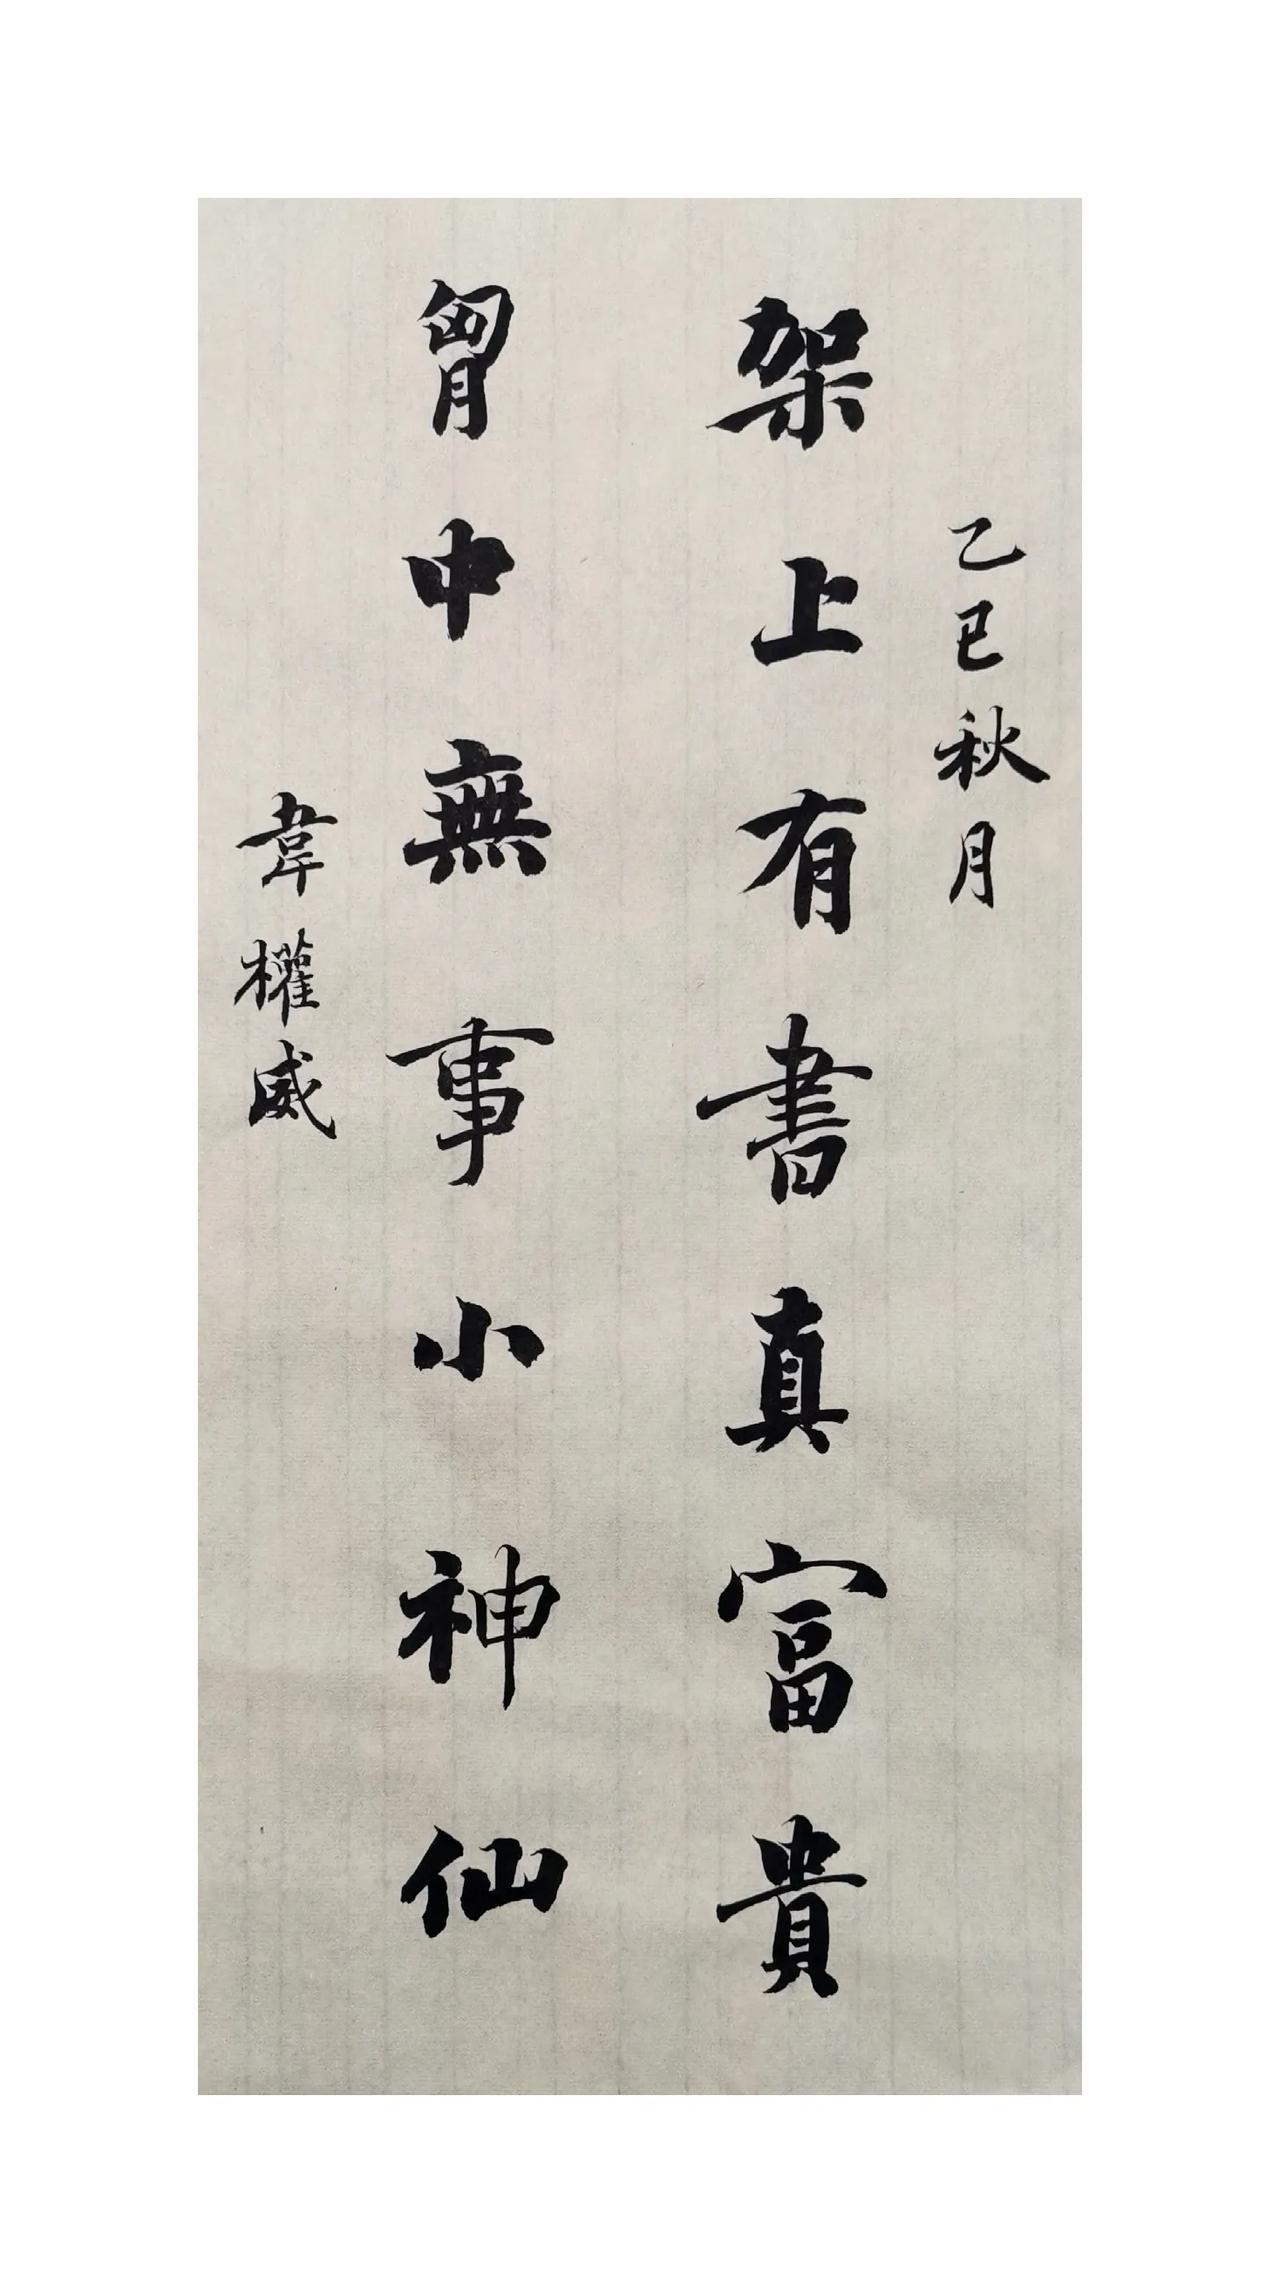 乙巳秋月
架上有書真富貴
胷中無事小神仙
韋權威